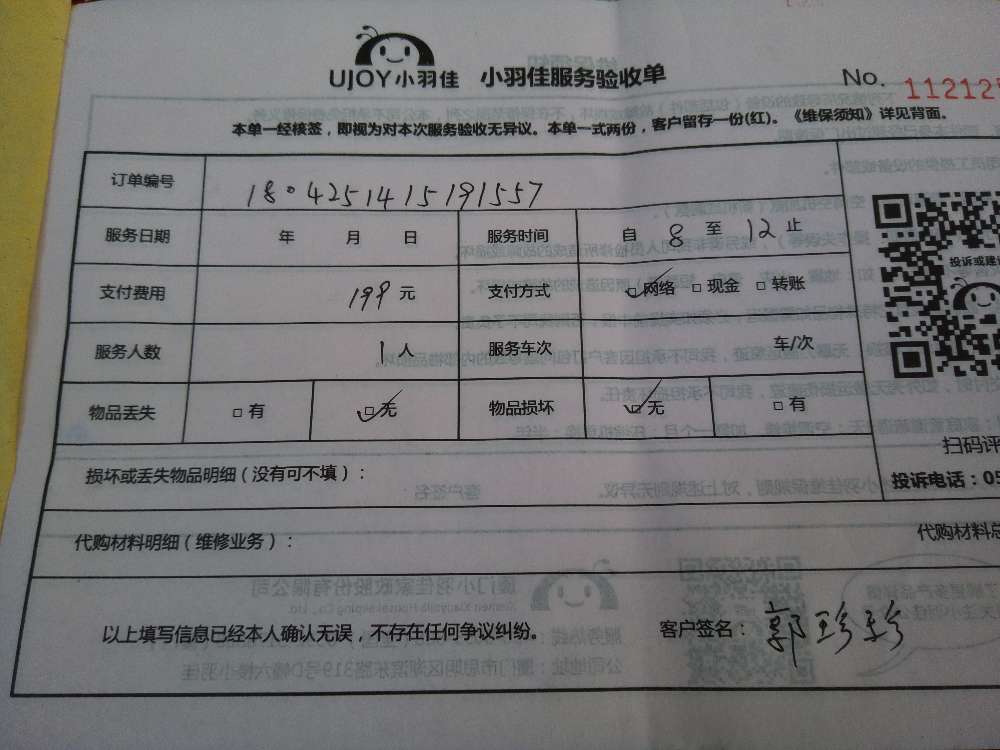 UJOY小羽佳 小羽佳服务验收单
No. 11212
本单一经核签，即视为对本次服务验收无异议。本单一式两份，客户留存一份(红)。《维保须知》详见背面。
订单编号 180425141519 1557
服务日期 年 月 日 服务时间 自 8 至 12 止
支付费用 199 元 支付方式 □网络 □现金 □转账
服务人数 1 人 服务车次 车/次
物品丢失 □有 □无 物品损坏 □无 □有
投诉或建
扫码评
损坏或丢失物品明细（没有可不填）：
投诉电话：05
代购材料明细（维修业务）：
代购材料总
以上填写信息已经本人确认无误，不存在任何争议纠纷。
客户签名：郭珍珍